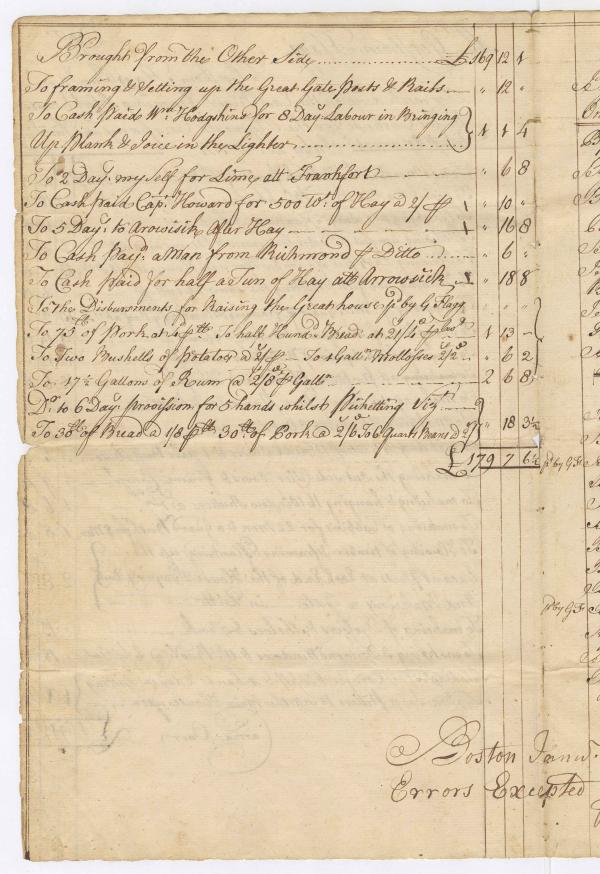 Brought from the Other Side £ 169 12 1
To framing & Setting up the Great Gate Posts & Rails " 12 "
To Cash Paid Wm Hodgskins for 8 Day Labour in Bringing
Up Plank & Joice in the Lighter 1 1 4
To 2 Day: my Self for Lime att Frankfort " 6 8
To Cash Paid Cap: Howard for 500 Wt: of Hay @ 2/ " 10 "
To 5 Day: to Arowisik After Hay " 16 8
To Cash Payd: a Man from Richmond P Ditto " 6 "
To Cash Paid for half a Tun of Hay att Arrowsick " 18 8
To The Disbursments for Raising the Great house pd by G Flagg " " "
To 75 lb of Pork at P lb To half Hund:d Bread at 21/4 1 13 –
To Two Bushells of Potatos @ 2/ P To 1 Gall:n Mollosses 2/2 " 6 2
To 17½ Gallons of Rum @ 2/8 P Gall:n 2 6 8
Do: to 6 Day: provission for 5 hands whilst Picketting Vizt
To 30 lb of Bread @ 1/8 P lb 30 lb of Pork @ 2/6 To 6 Quarts Beans @ " 18 3½
£ 179 7 6½
pd by G F
pd by G F
Boston Janu:
Errors Excepted